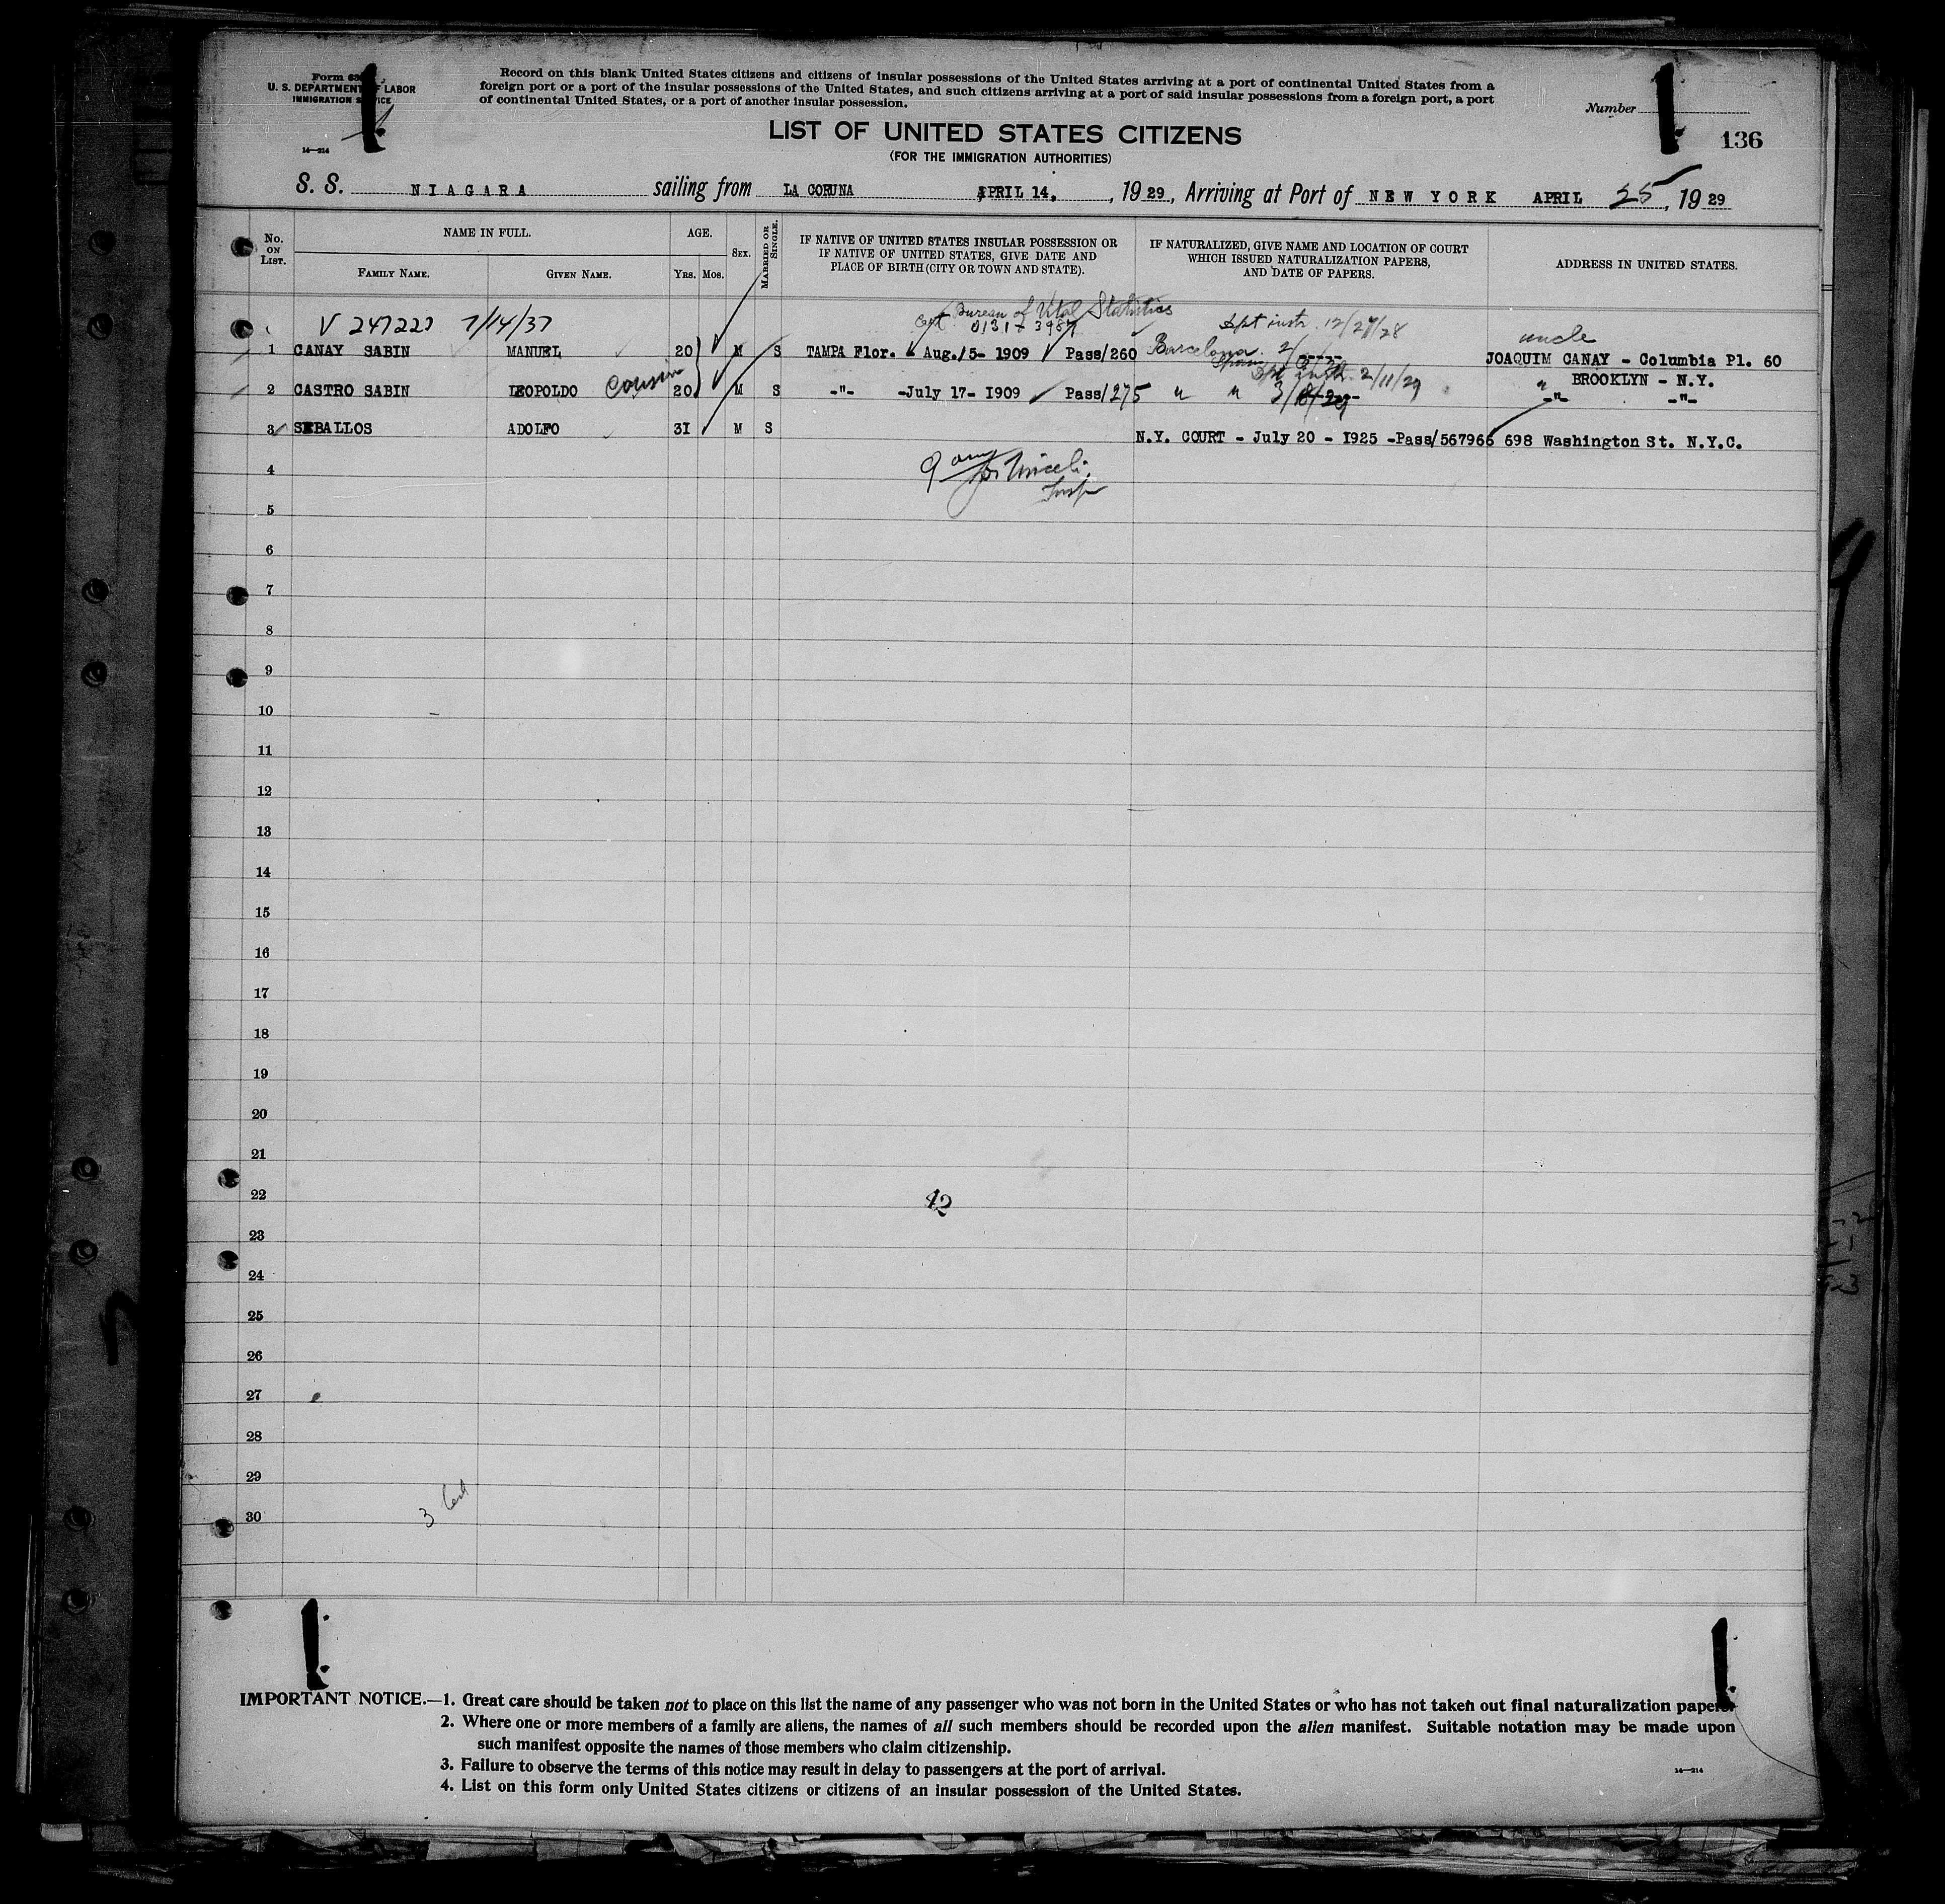 Form 63
U. S. DEPARTMENT OF LABOR
IMMIGRATION SERVICE
14—214
Record on this blank United States citizens and citizens of insular possessions of the United States arriving at a port of continental United States from a
foreign port or a port of the insular possessions of the United States, and such citizens arriving at a port of said insular possessions from a foreign port, a port
of continental United States, or a port of another insular possession.
Number
136
LIST OF UNITED STATES CITIZENS
(FOR THE IMMIGRATION AUTHORITIES)
S. S. NIAGARA sailing from LA CORUNA APRIL 14, , 19 29 , Arriving at Port of NEW YORK APRIL 25 , 19 29
No. ON LIST.
NAME IN FULL.
FAMILY NAME. GIVEN NAME.
AGE.
YRS. MOS.
SEX.
MARRIED OR SINGLE.
IF NATIVE OF UNITED STATES INSULAR POSSESSION OR
IF NATIVE OF UNITED STATES, GIVE DATE AND
PLACE OF BIRTH (CITY OR TOWN AND STATE).
IF NATURALIZED, GIVE NAME AND LOCATION OF COURT
WHICH ISSUED NATURALIZATION PAPERS,
AND DATE OF PAPERS.
ADDRESS IN UNITED STATES.
V 247223 7/14/37 Bureau of Vital Statistics
0131-3987 Dpt instr. 12/27/28 uncle
1 CANAY SABIN MANUEL 20 M S TAMPA Flor. Aug./5- 1909 Pass/260 Barcelona Spain JOAQUIM CANAY - Columbia Pl. 60
Dpt instr. 2/11/29 " BROOKLYN - N.Y.
2 CASTRO SABIN LEOPOLDO cousin 20 M S -"- -July 17- 1909 Pass/275 " " 3/18/29 -"- -"-
3 SEBALLOS ADOLFO 31 M S N.Y. COURT - July 20 - 1925 -Pass/567966 698 Washington St. N.Y.C.
4
Insp
5
6
7
8
9
10
11
12
13
14
15
16
17
18
19
20
21
22 42
23
24
25
26
27
28
29
3
30
IMPORTANT NOTICE.—1. Great care should be taken not to place on this list the name of any passenger who was not born in the United States or who has not taken out final naturalization papers.
2. Where one or more members of a family are aliens, the names of all such members should be recorded upon the alien manifest. Suitable notation may be made upon
such manifest opposite the names of those members who claim citizenship.
3. Failure to observe the terms of this notice may result in delay to passengers at the port of arrival.
14—214
4. List on this form only United States citizens or citizens of an insular possession of the United States.